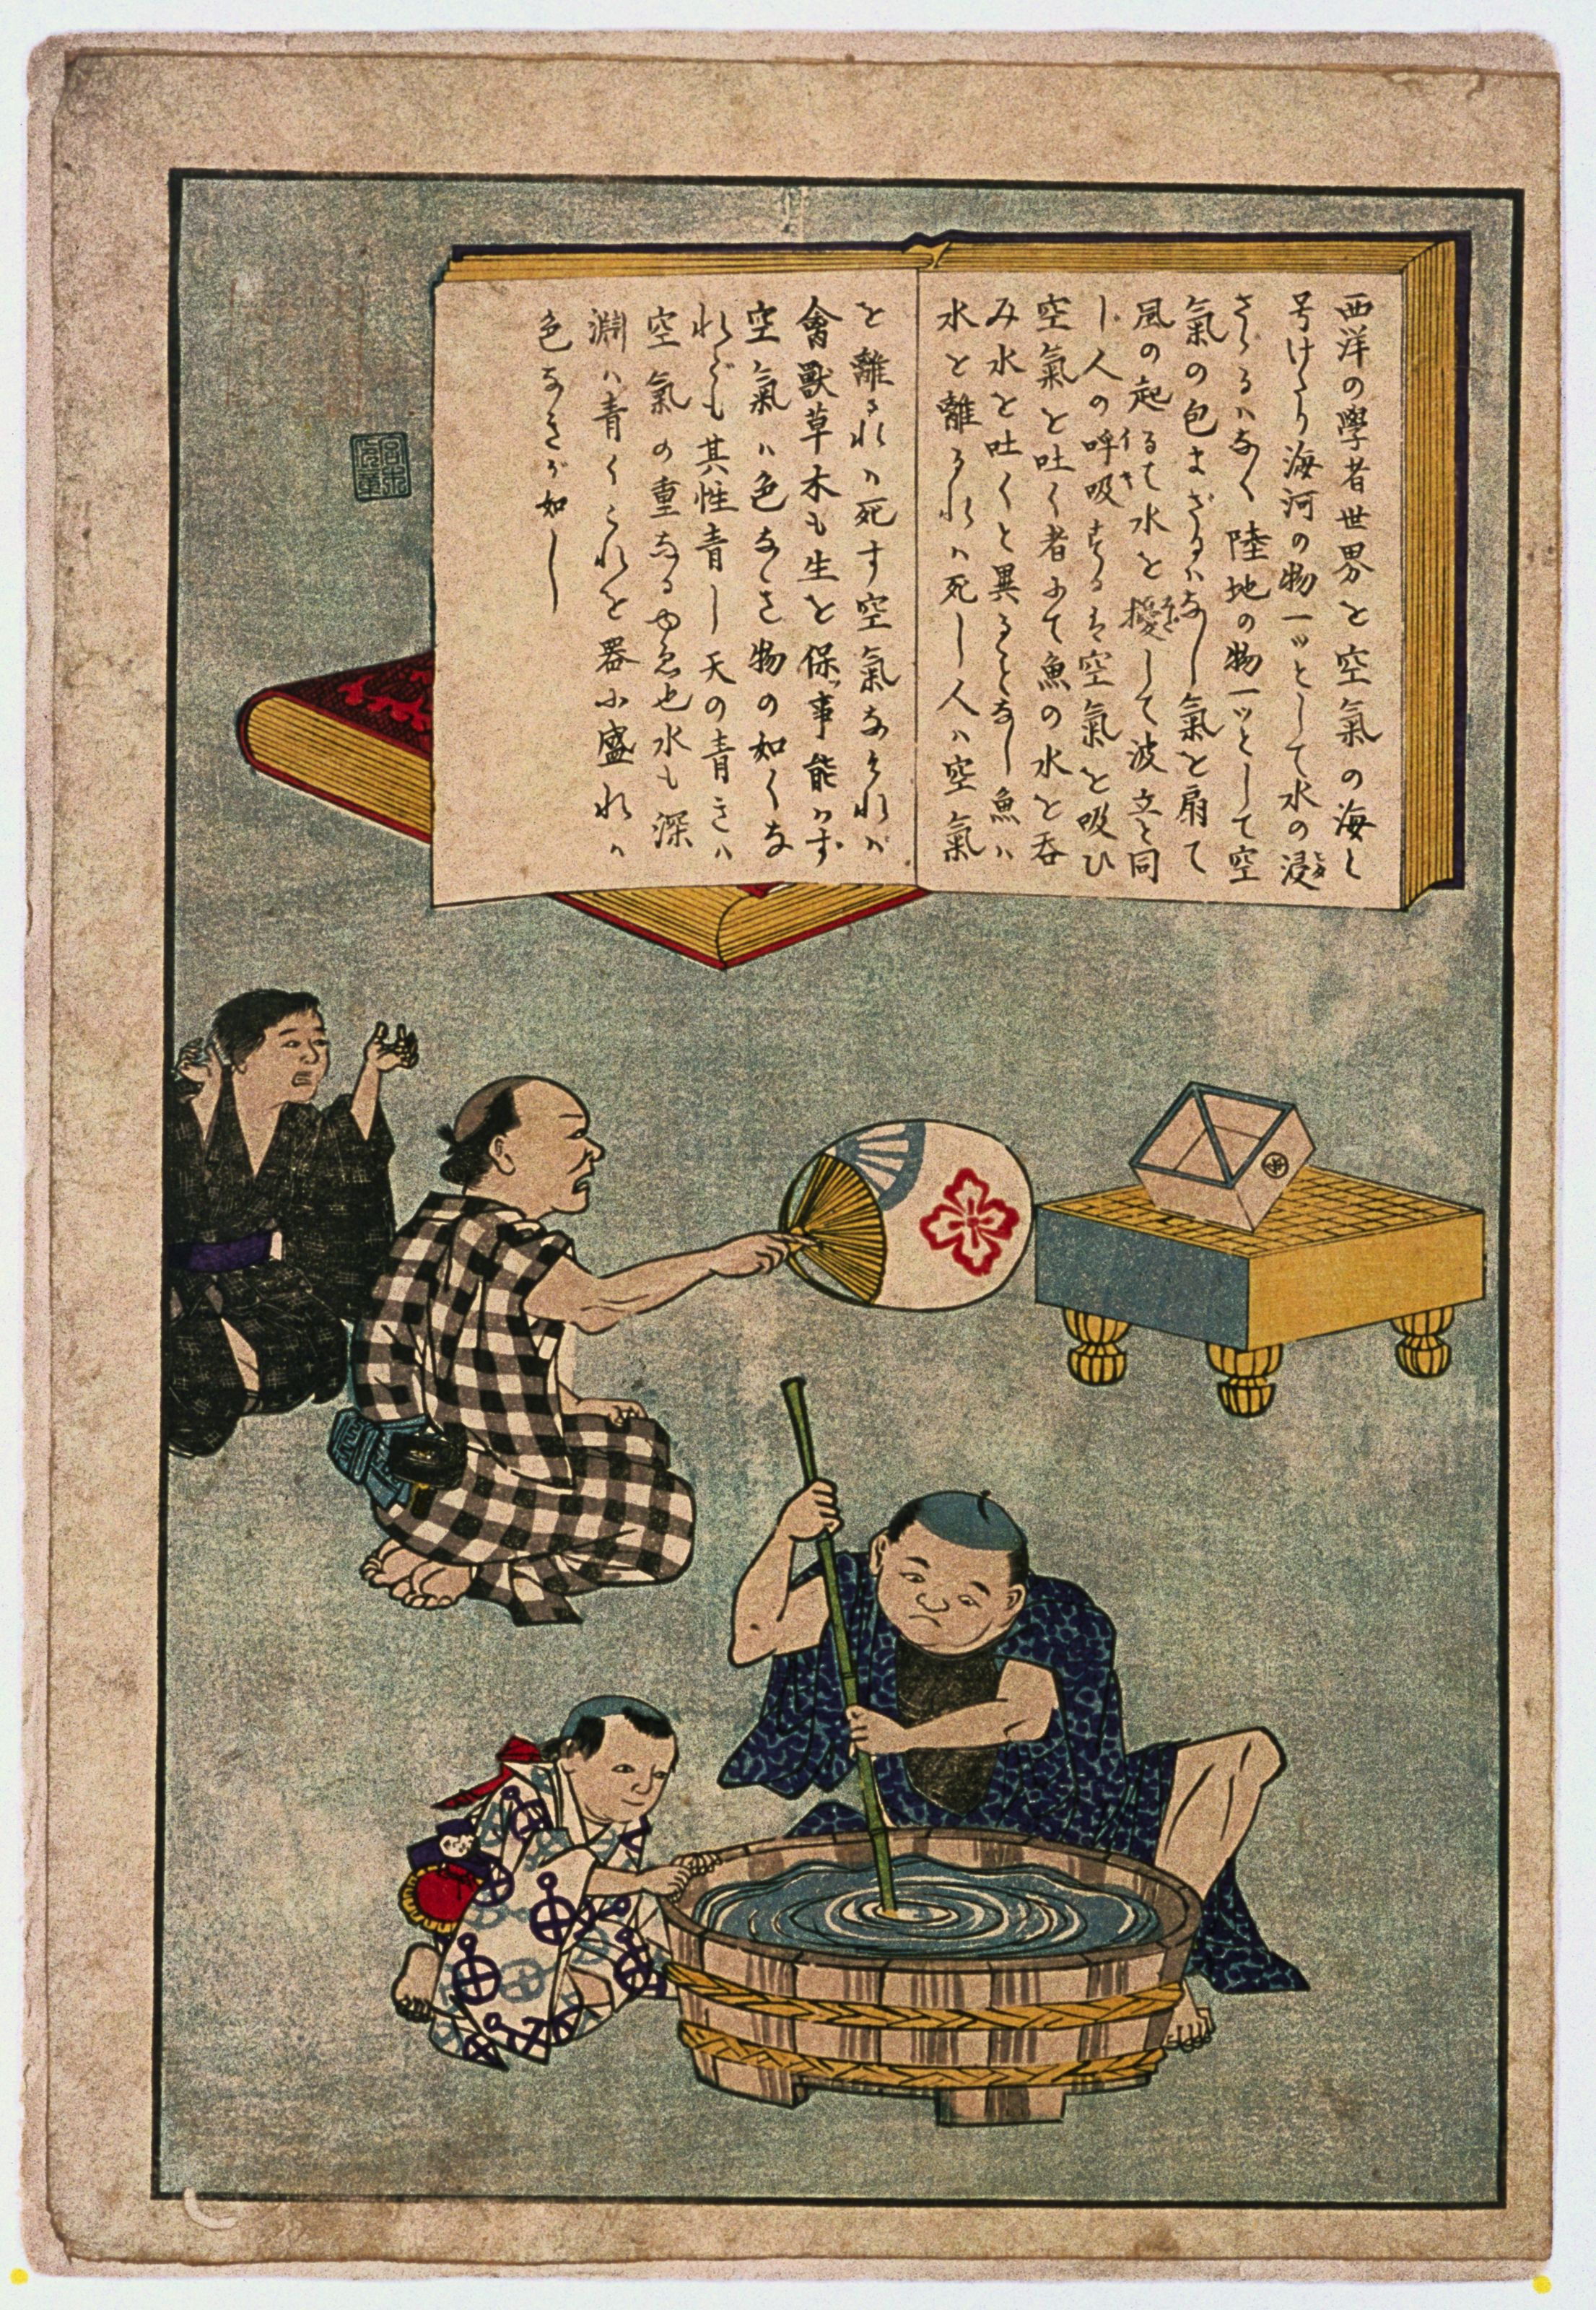 西洋の學者世界を空氣の海と
号けたり海河の物一ッとして水の浸
さゝるハなく陸地の物一ッとして空
氣の包まざるハなし氣を扇て
風の起るは水を擾して波立と同
し人の呼吸するは空氣を吸ひ
空氣を吐く者にて魚の水を呑
み水を吐くと異ることなし魚ハ
水を離るれハ死し人ハ空氣
を離るれハ死す空氣なけれバ
禽獸草木も生を保事能ハず
空氣ハ色なき物の如くな
れども其性青し天の青きハ
空氣の重なるゆゑ也水も深
淵ハ青くこれを器に盛れハ
色なきが如し